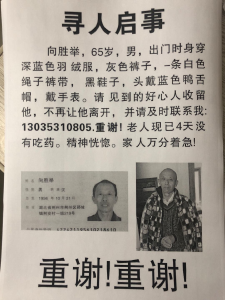 寻人启事
向胜举，65岁，男，出门时身穿
深蓝色羽绒服，灰色裤子，一条白色
绳子裤带，黑鞋子，头戴蓝色鸭舌
帽，戴手表。请见到的好心人收留
他，不再让他离开，并请及时联系我:
13035310805.重谢! 老人现已4天没
有吃药。精神恍惚。家人万分着急!
向胜举
男
重谢!重谢!